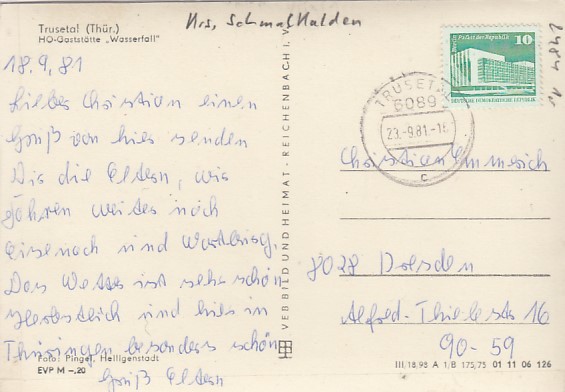 Trusetal (Thür.)
HO-Gaststätte „Wasserfall"
Krs. Schmalkalden
18.9.81
Liebes Christian einen
Gruß von hier senden
Dir die Eltern, wir
fahren weiter nach
Eisenach und Wartburg.
Das Wetter ist sehr schön
herbstlich und hier in
Thüringen besonders schön
Gruß Eltern
Foto: Pingel, Heiligenstadt
EVP M –,20
VEB BILD UND HEIMAT · REICHENBACH I. V.
Berlin Palast der Republik 10
DEUTSCHE DEMOKRATISCHE REPUBLIK
TRUSETAL
6089
23.-9.81-18
c
Christian Emmerich
8028 Dresden
Alfred-Thiele-Str 16
90-59
III/18/98 A 1/B 175/75 01 11 06 126